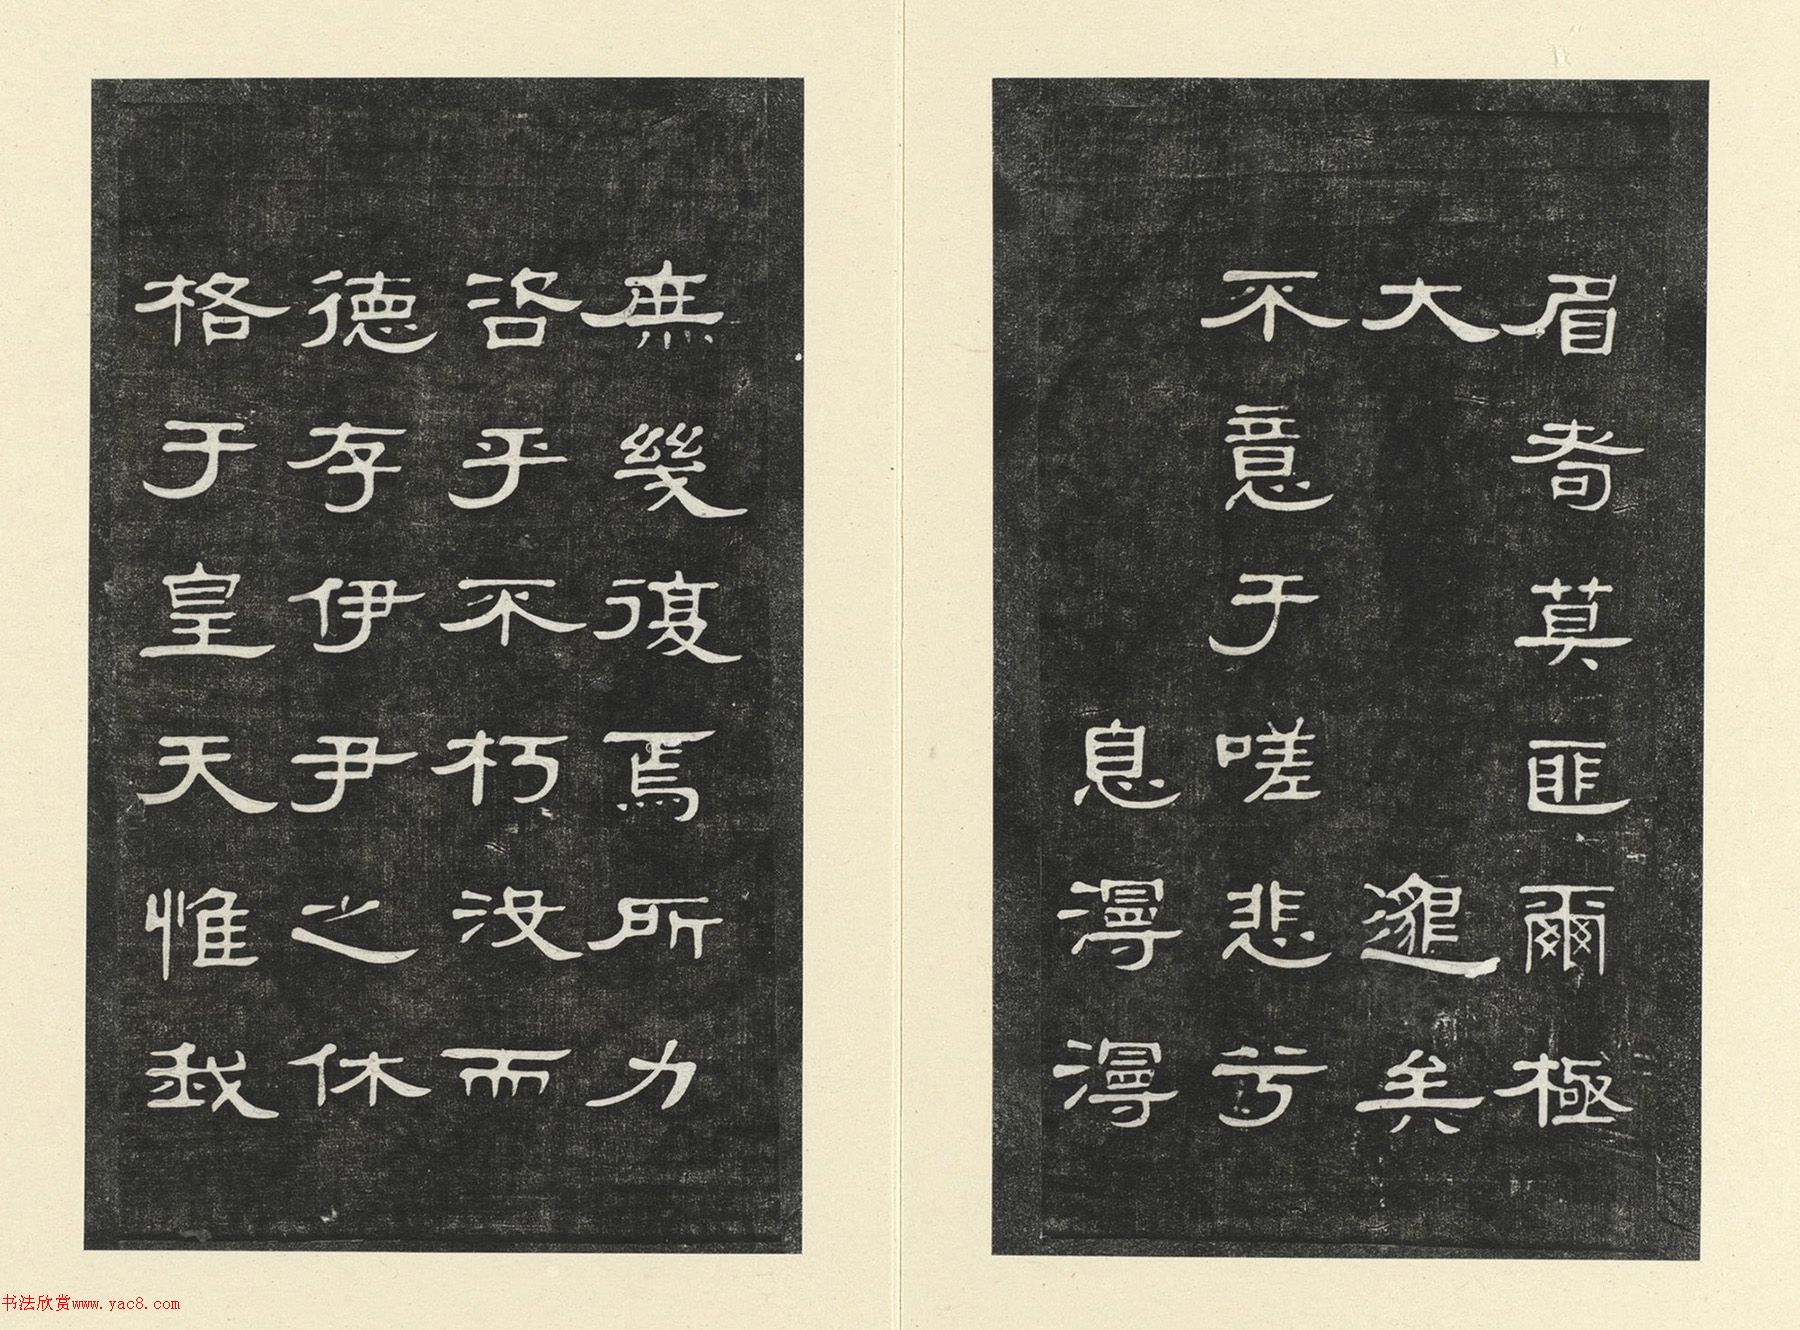 眉耇莫匪爾極
大 邈矣
不意于嗟悲兮
息漫漫
庶幾復焉所力
咨乎不朽沒而
德存伊尹之休
格于皇天惟我
书法欣赏www.yac8.com